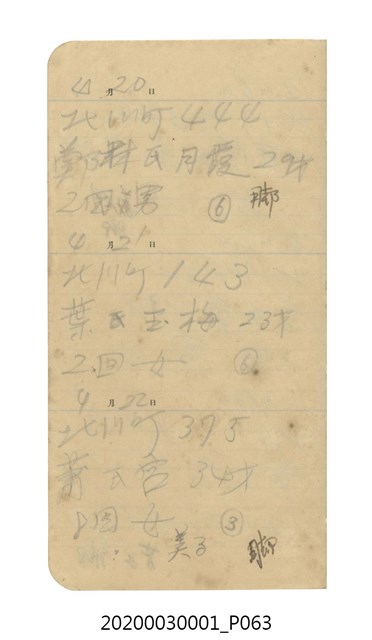 4月20日
北川町444
鄭林氏月霞 29才
2回男 ⑥ 脚
4月21日
北川町143
葉氏玉梅 23才
2回女 ⑥
4月22日
北川町375
氏宮 34才
8回女 ③
美子 脚
20200030001_P063